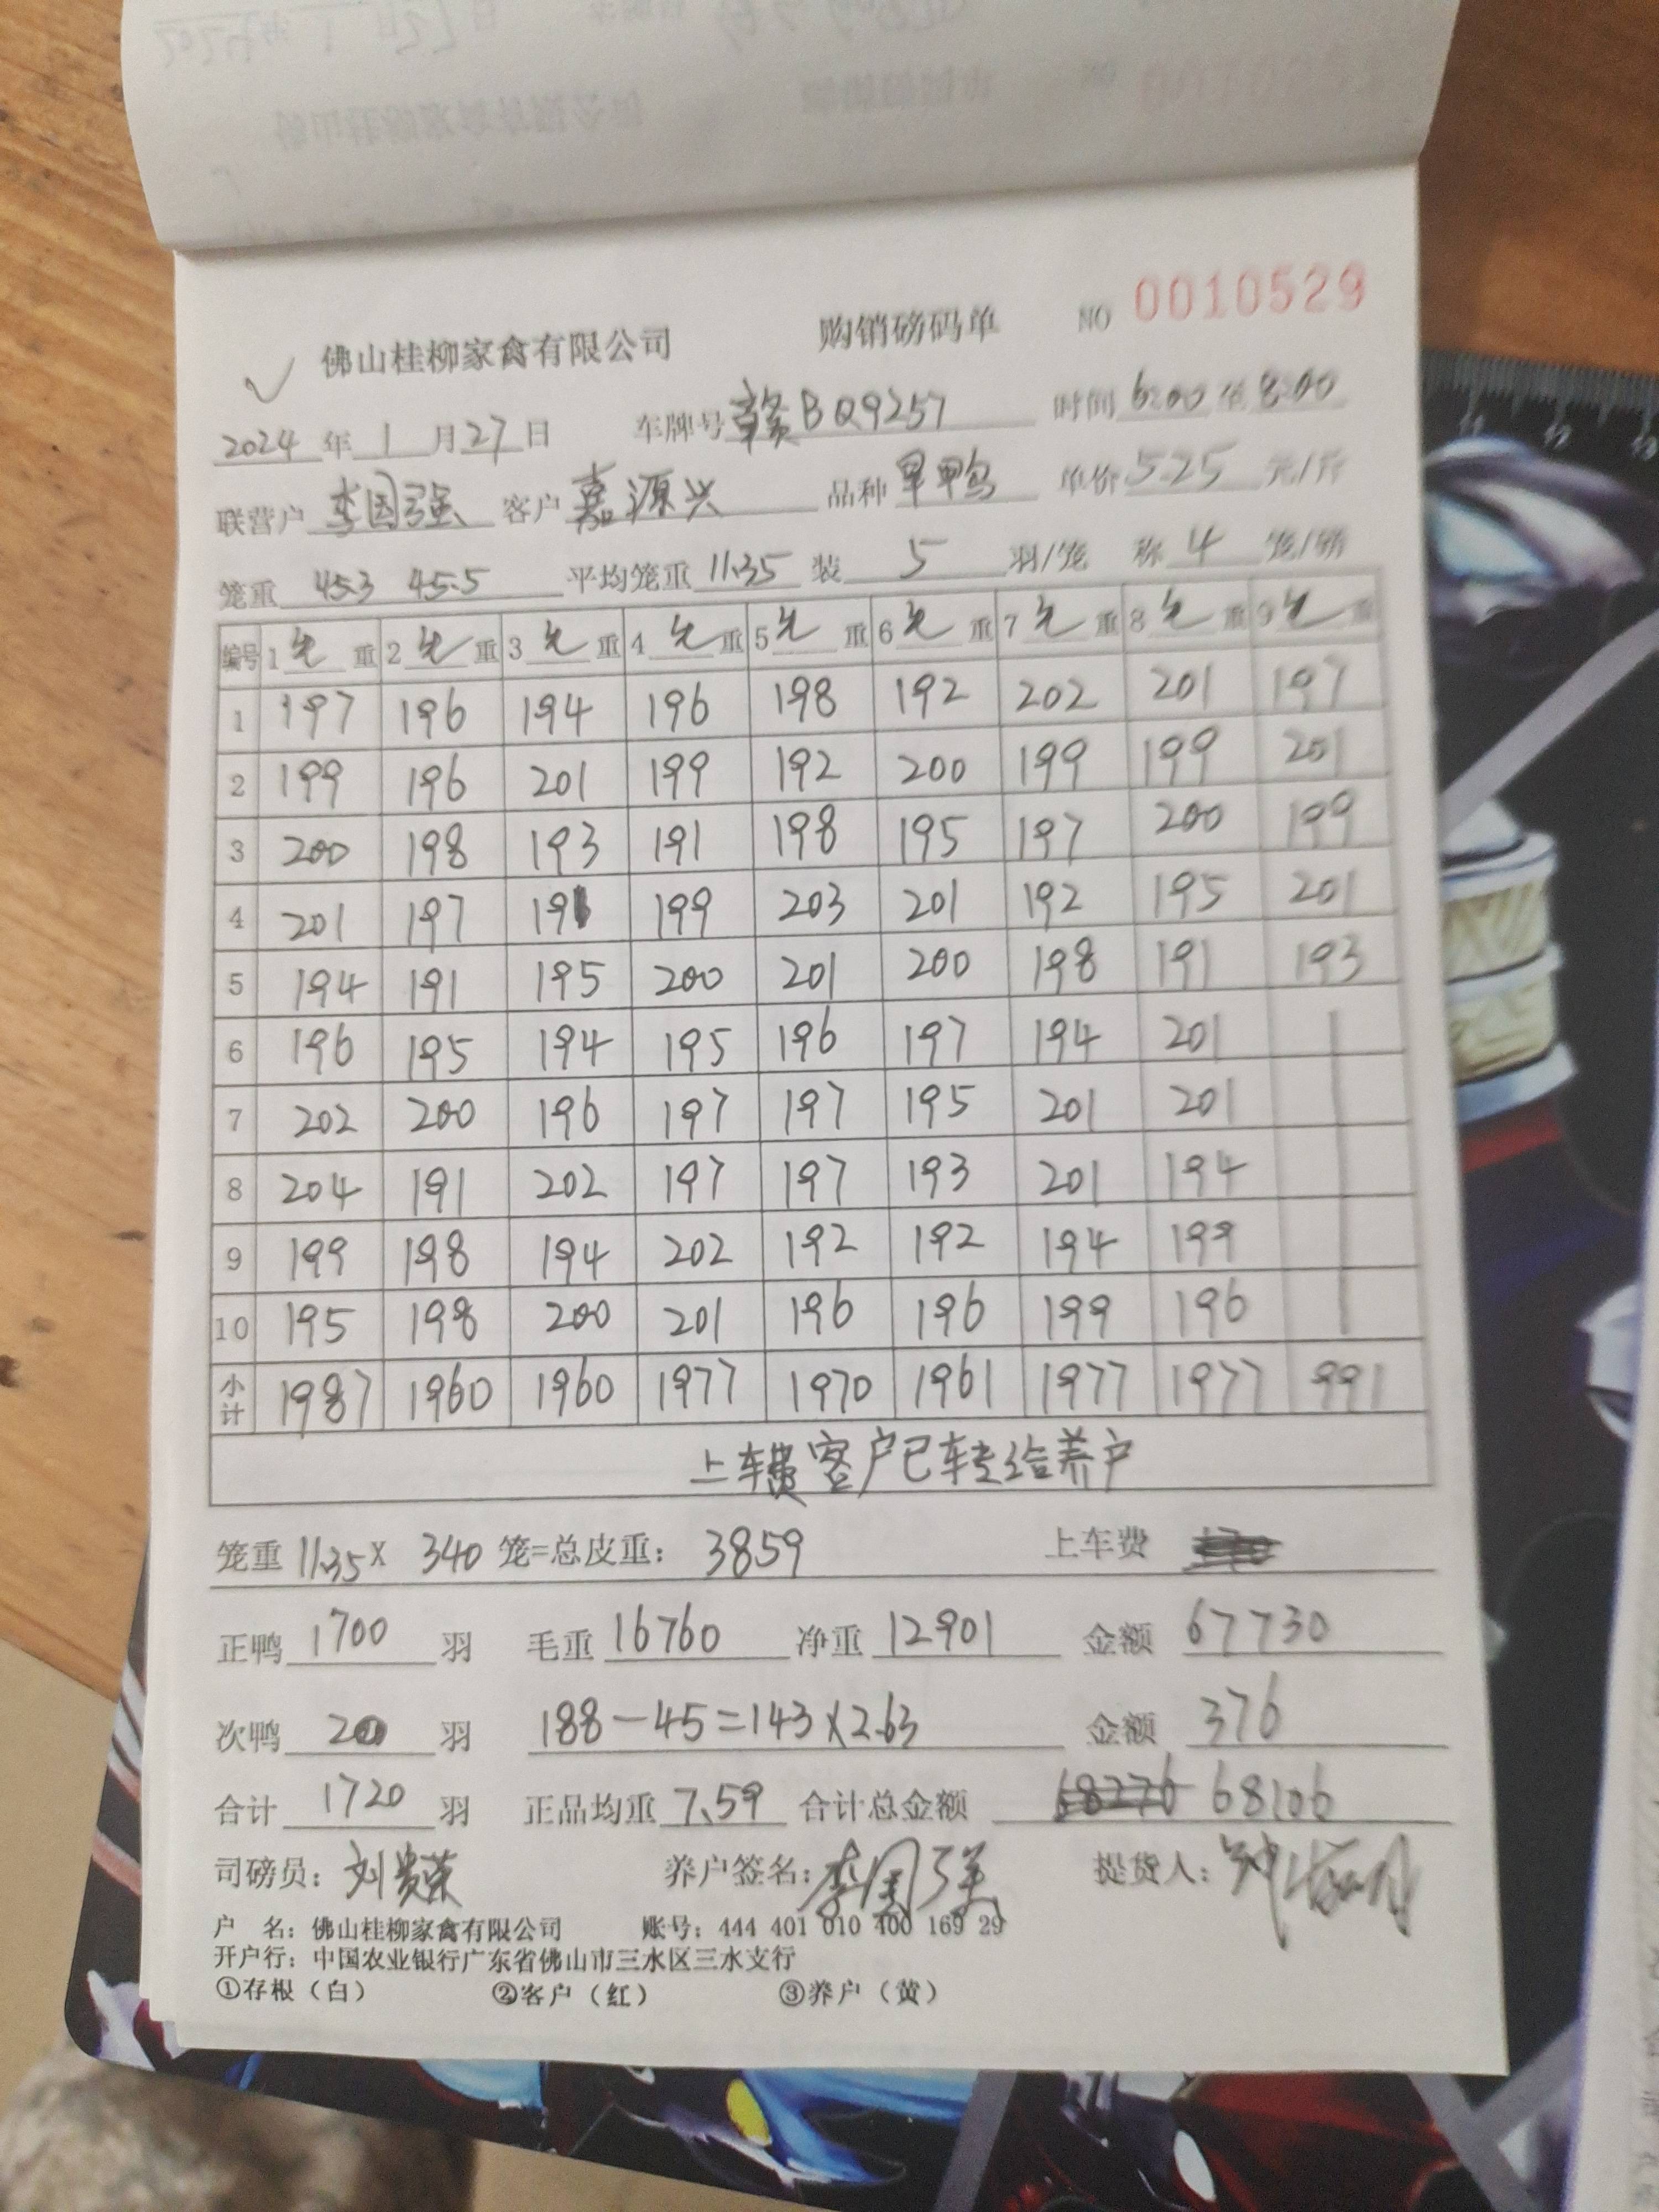 佛山桂柳家禽有限公司 购销磅码单 NO 0010529
2024 年 1 月 27 日 车牌号 赣BQ9257 时间 6:00 至 8:00
联营户 李国强 客户 嘉源兴 品种 旱鸭 单价 5.25 元/斤
笼重 45.3 45.5 平均笼重 11.35 装 5 羽/笼 称 4 笼/磅
编号 1 毛 重 2 毛 重 3 毛 重 4 毛 重 5 毛 重 6 毛 重 7 毛 重 8 毛 重 9 毛 重
1 197 196 194 196 198 192 202 201 197
2 199 196 201 199 192 200 199 199 201
3 200 198 193 191 198 195 197 200 199
4 201 197 191 199 203 201 192 195 201
5 194 191 195 200 201 200 198 191 193
6 196 195 194 195 196 197 194 201
7 202 200 196 197 197 195 201 201
8 204 191 202 197 197 193 201 194
9 199 198 194 202 192 192 194 199
10 195 198 200 201 196 196 199 196
小计 1987 1960 1960 1977 1970 1961 1977 1977 991
上车费客户已转给养户
笼重 11.35 X 340 笼=总皮重: 3859 上车费
正鸭 1700 羽 毛重 16760 净重 12901 金额 67730
次鸭 20 羽 188-45=143×2.63 金额 376
合计 1720 羽 正品均重 7.59 合计总金额 68276 68106
司磅员: 刘贵荣 养户签名: 李国强 提货人:
户 名: 佛山桂柳家禽有限公司 账号: 444 401 010 400 169 29
开户行: 中国农业银行广东省佛山市三水区三水支行
①存根（白） ②客户（红） ③养户（黄）